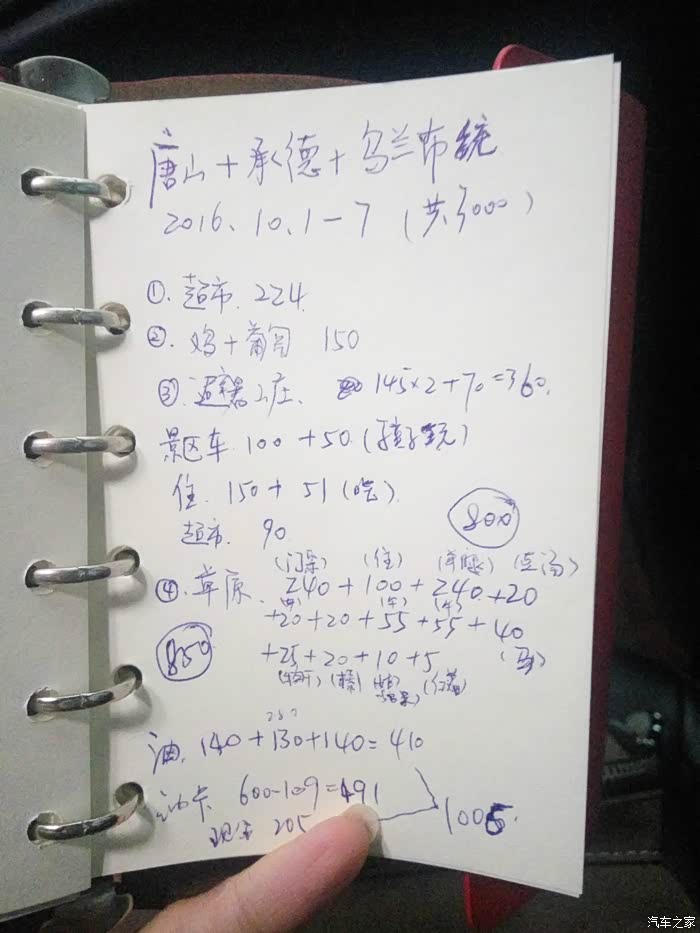 唐山+承德+乌兰布统
2016.10.1-7 (共3000)
①.超市.224
②.鸡+葡萄 150
③.避暑山庄. 145×2+70=360.
景区车.100+50(骑)
住.150+51(吃).
超市.90
800
(门票) (住) (羊腿) (点汤)
④.草原.240+100+240+20
(早) (午) (午)
+20+20+55+55+40
850 +25+20+10+5 (马)
油.140+130+140=410
油卡 600-109=491
现金 205 1005.
汽车之家